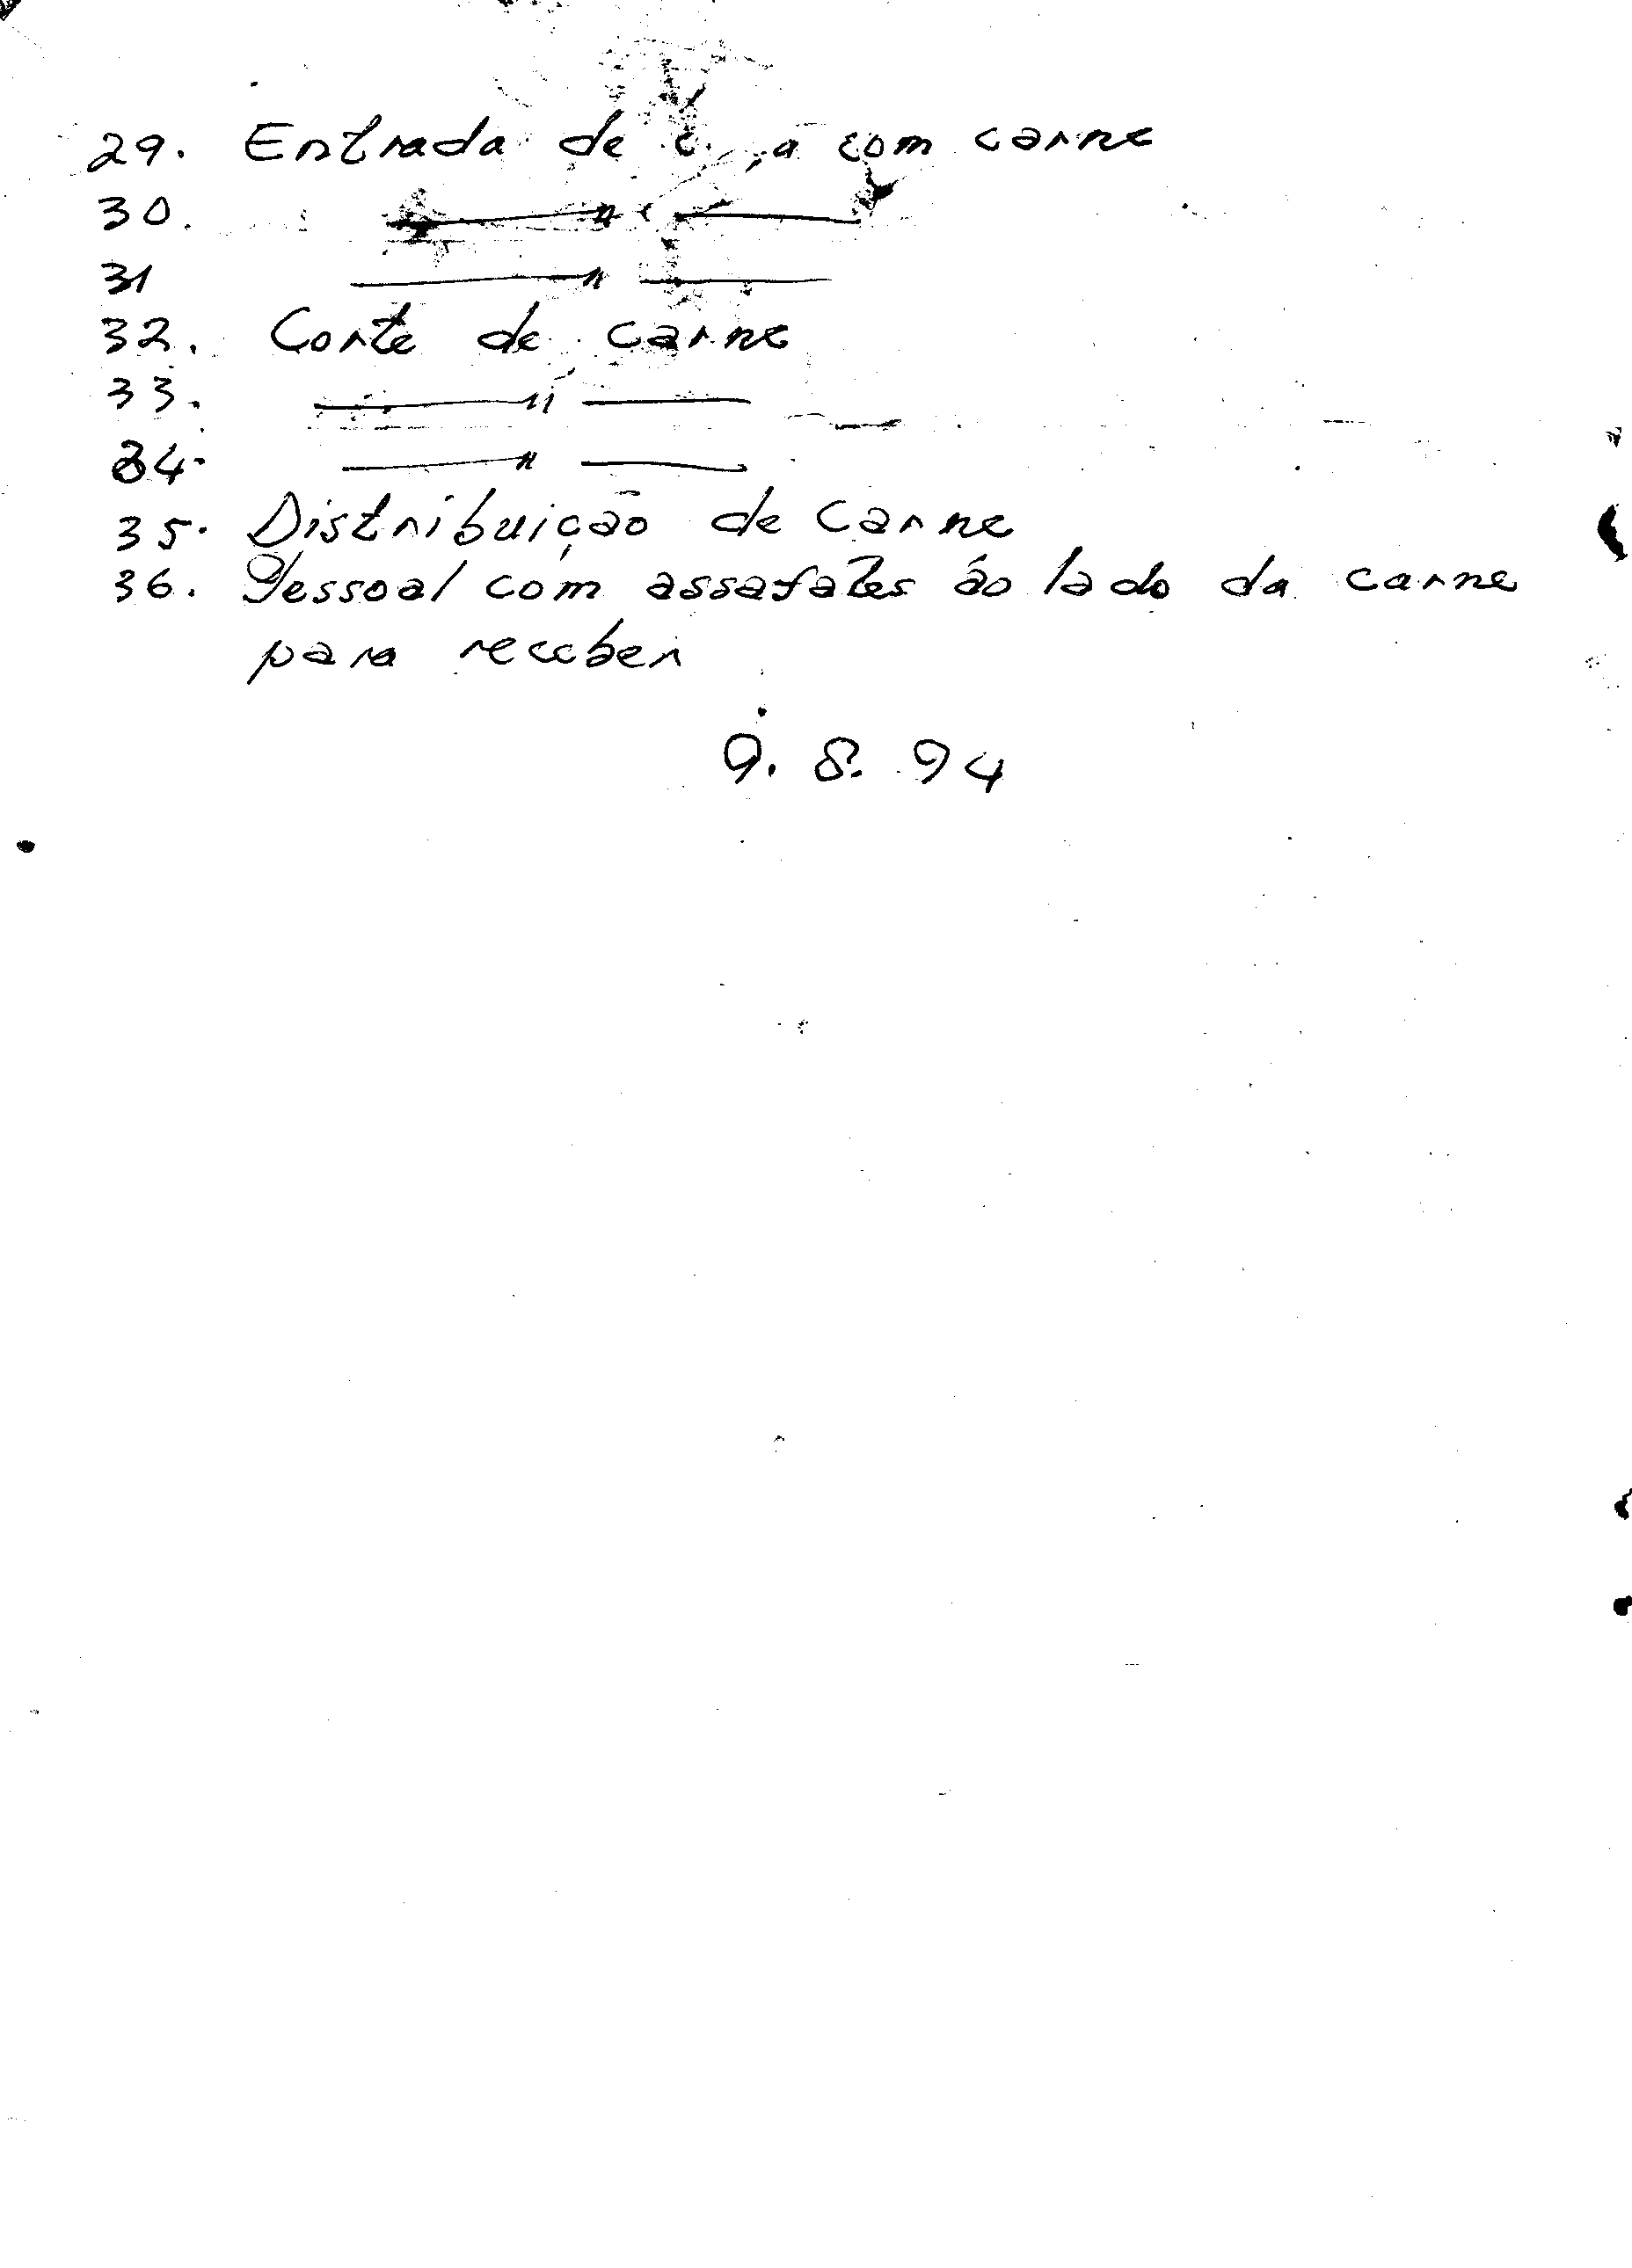 29. Entrada de com carne
30. —— " ——
31 —— " ——
32. Corte de carne
33. —— " ——
34. —— " ——
35. Distribuição de carne
36. Pessoal com assafates áo lado da carne
para receber
9. 8. 94